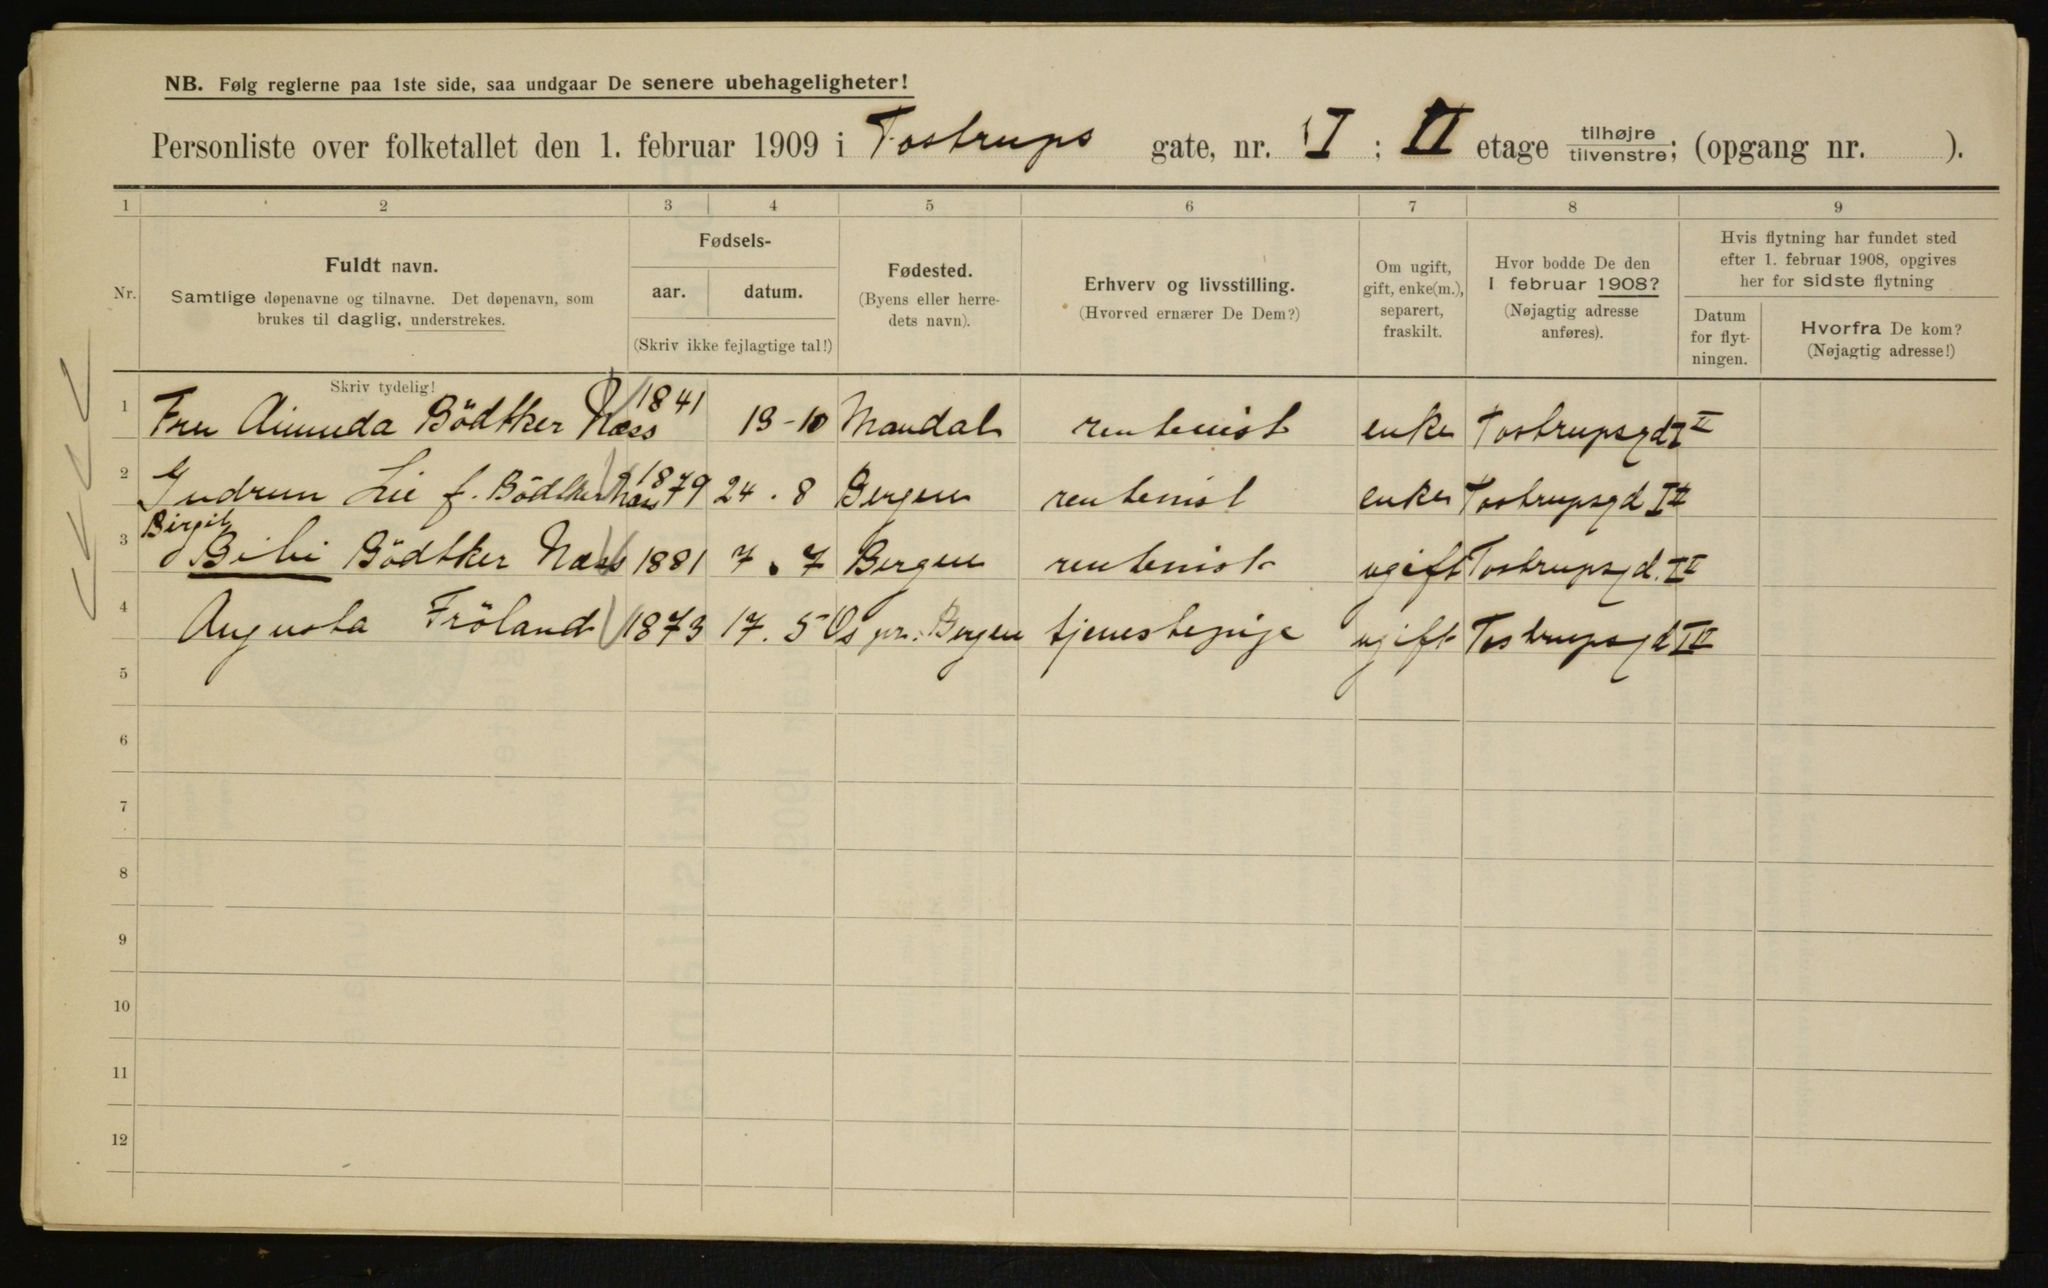 NB. Følg reglerne paa 1ste side, saa undgaar De senere ubehageligheter!
Personliste over folketallet den 1. februar 1909 i Tostrups gate, nr. I ; II etage tilhøjre/tilvenstre; (opgang nr. ).
1 2 3 4 5 6 7 8 9
Nr.
Fuldt navn.
Samtlige døpenavne og tilnavne. Det døpenavn, som
brukes til daglig, understrekes.
Skriv tydelig!
Fødsels-
aar. datum.
(Skriv ikke fejlagtige tal!)
Fødested.
(Byens eller herre-
dets navn).
Erhverv og livsstilling.
(Hvorved ernærer De Dem?)
Om ugift,
gift, enke(m.),
separert,
fraskilt.
Hvor bodde De den
1 februar 1908?
(Nøjagtig adresse
anføres).
Hvis flytning har fundet sted
efter 1. februar 1908, opgives
her for sidste flytning
Datum
for flyt-
ningen.
Hvorfra De kom?
(Nøjagtig adresse!)
1 Fru Bödtker Næss 1841 19-10 Mandal rentenist enke Tostrupsgd I II
2 Gudrun Lie f. Bödtker Næss 1879 24. 8 Bergen rentenist enke Tostrupsgd I II
Birgit
3 Bibi Bödtker Næss 1881 7. 7 Bergen rentenist ugift Tostrupsgd. I II
4 Augusta Fröland 1873 17. 5 Os pr. Bergen tjenestepige ugift Tostrupsgd I II
5
6
7
8
9
10
11
12